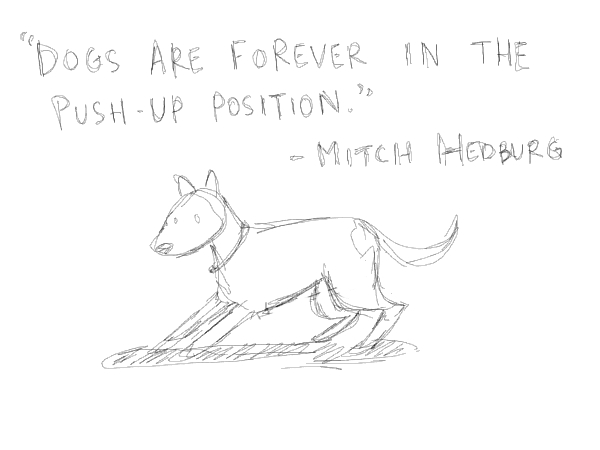 "DOGS ARE FOREVER IN THE
PUSH-UP POSITION."
- MITCH HEDBURG